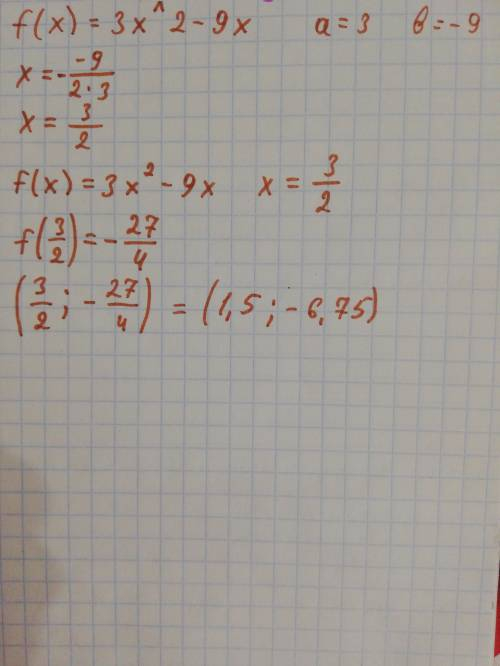 f(x) = 3x^2 - 9x   a = 3   b = -9
x = - -9/(2·3)
x = 3/2
f(x) = 3x² - 9x   x = 3/2
f(3/2) = - 27/4
(3/2 ; - 27/4) = (1,5 ; - 6,75)